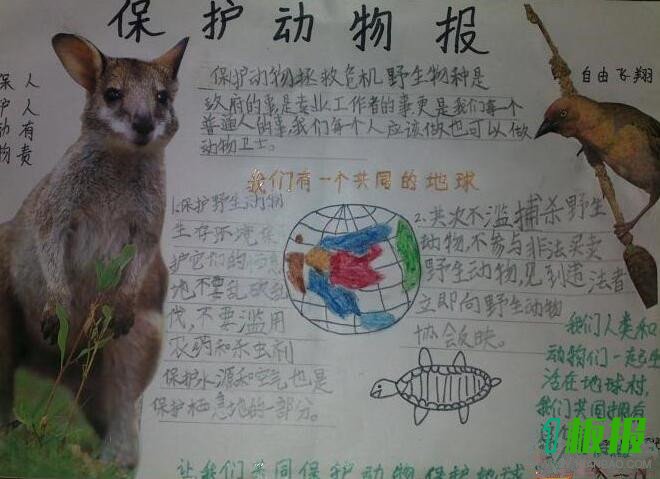 保护动物报
保护动物拯救危机野生物种是
政府的事是专业工作者的事更是我们每一个
普通人的事,我们每个人应该做也可以做
动物卫士。
人人有责
保护动物
自由飞翔
我们有一个共同的地球
1.保护野生动物
生存环境保
护它们的栖息
地不要乱砍乱
伐,不要滥用
农药和杀虫剂
保护水源和空气也是
保护栖息地的一部分。
2.其次不滥捕杀野生
动物,不参与非法买卖
野生动物,见到违法者
立即向野生动物
协会反映。
我们人类和
动物们一起生
活在地球村,
我们共同拥有
板报
让我们共同保护动物保护地球